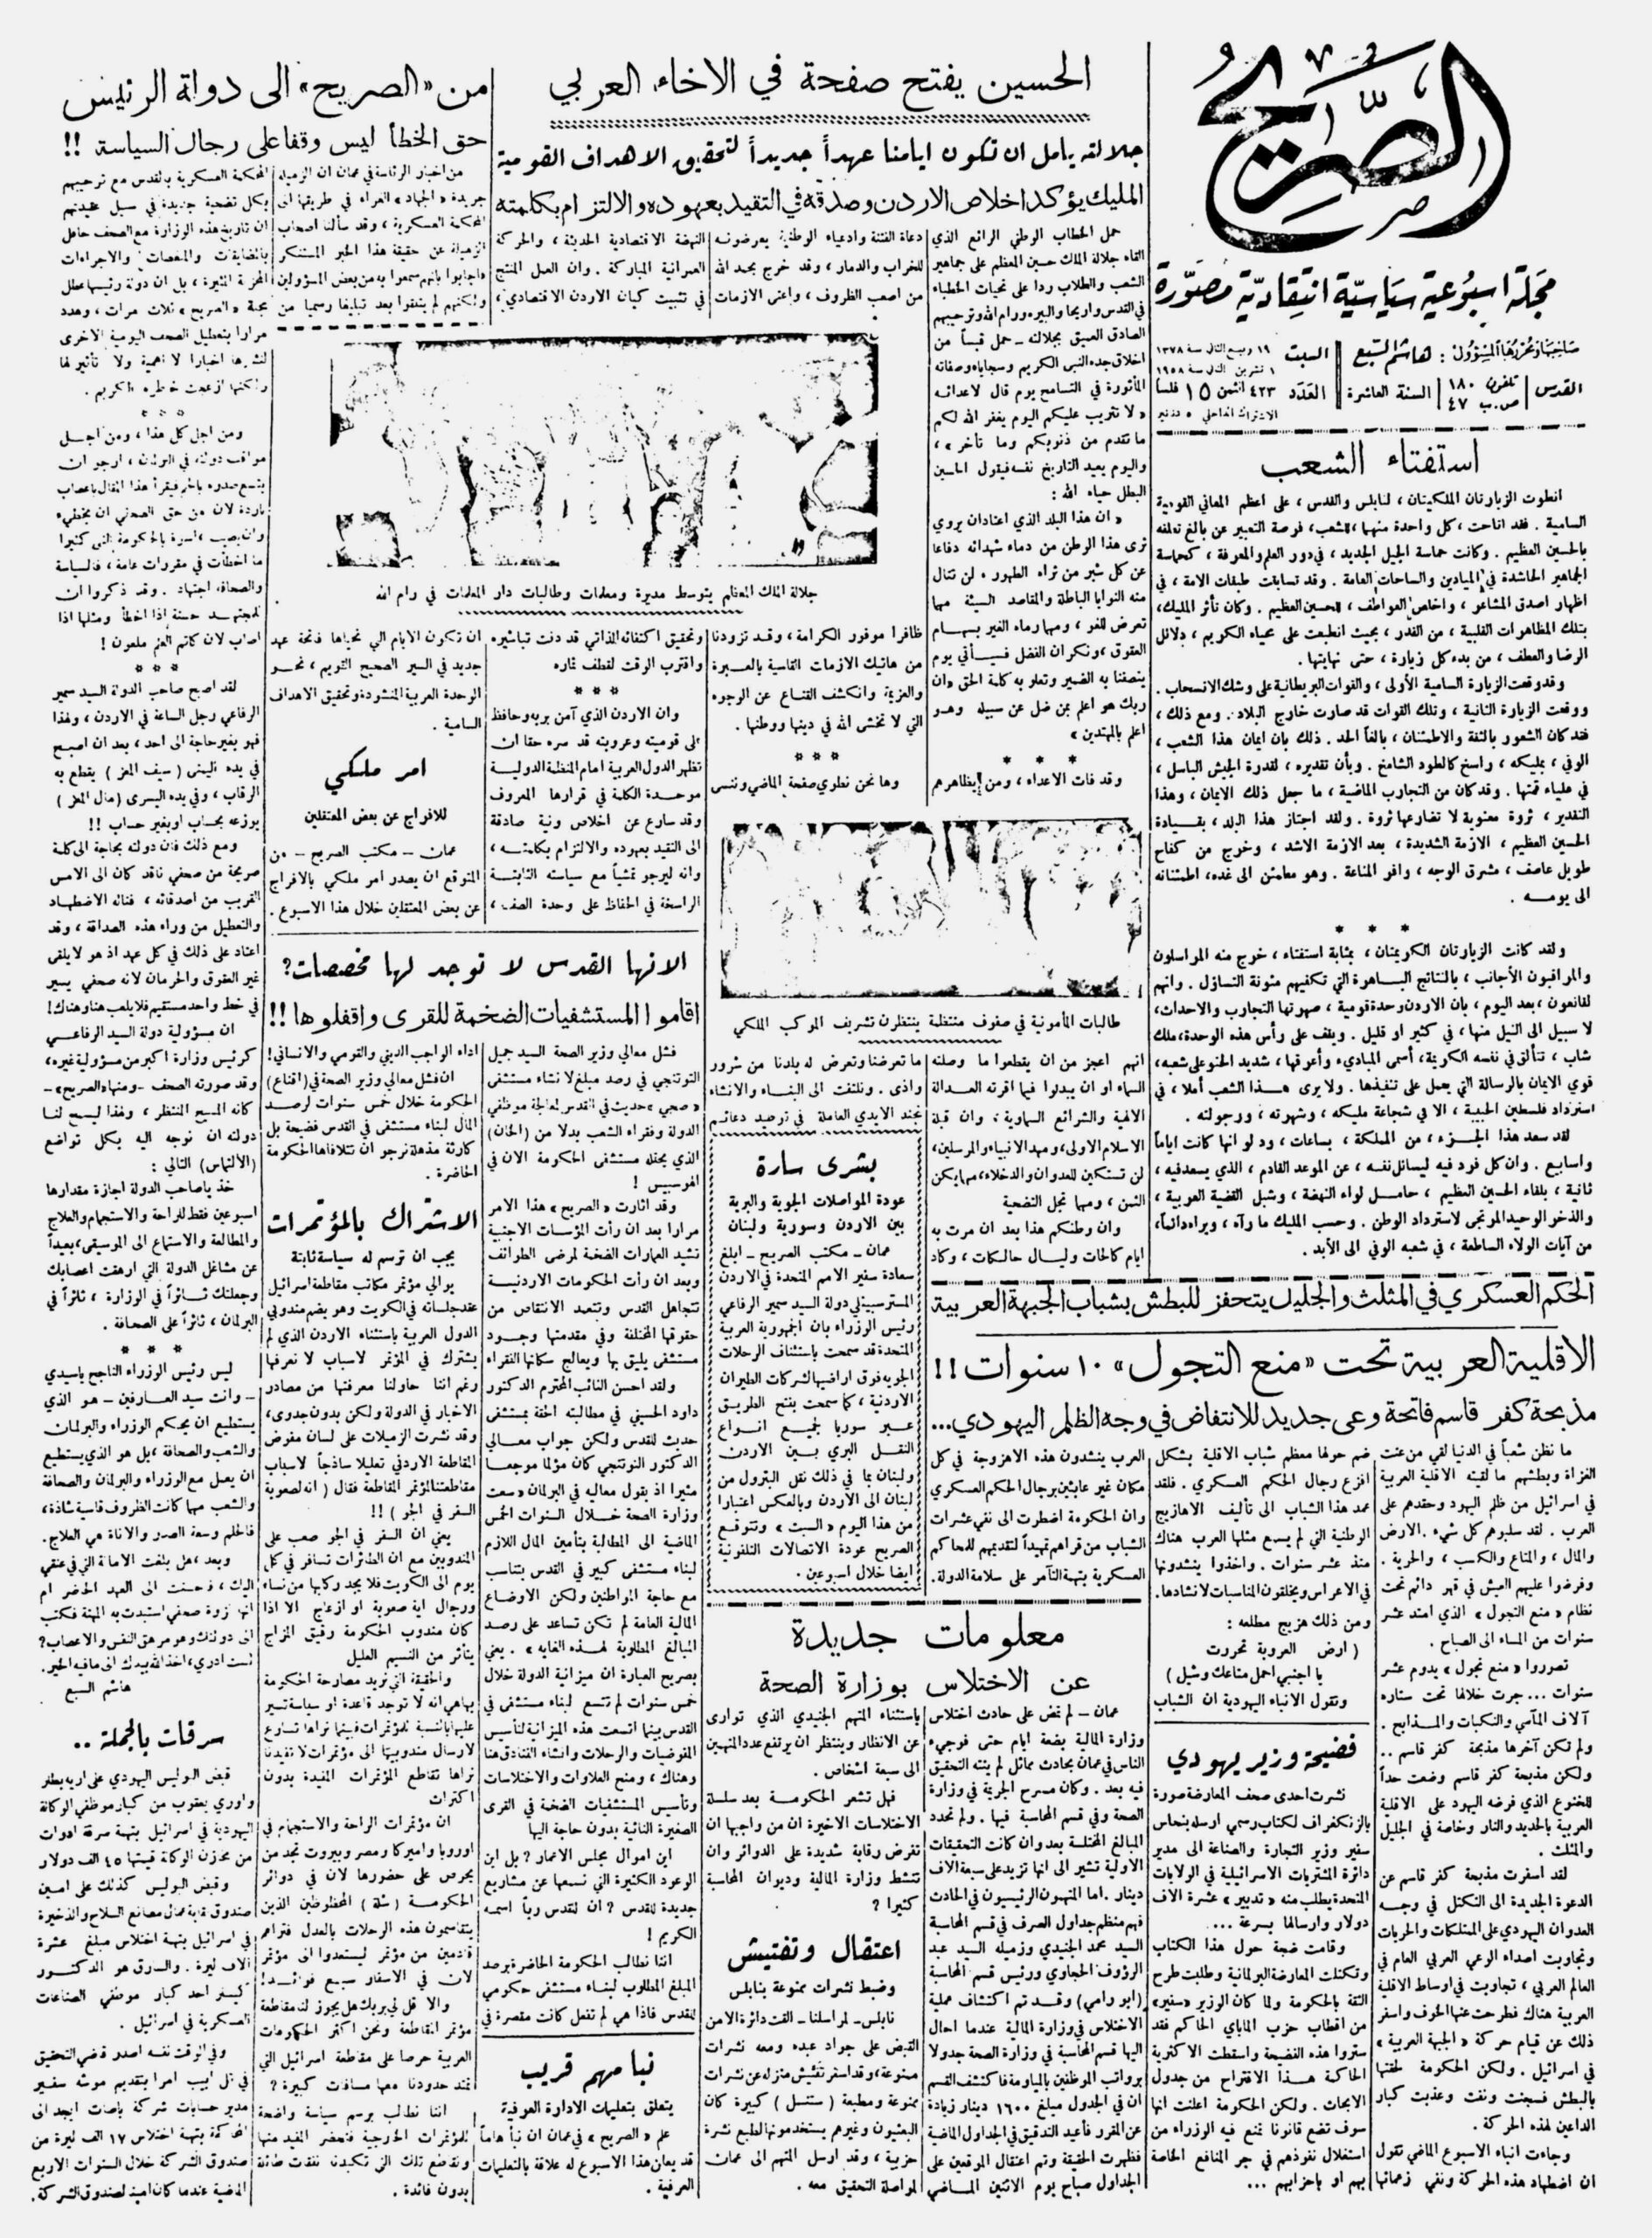 الصريح
مجلة اسبوعية سياسية انتقادية مصورة
صاحبها ومحررها المسؤول : هاشم السبع
السبت
١٩ ربيع الثاني سنة ١٣٧٨
١ تشرين الثاني سنة ١٩٥٨
القدس
تلفون ١٨٠
ص.ب ٤٧
السنة العاشرة
العدد ٤٢٣ الثمن ١٥ فلساً
استفتاء الشعب
انطوت الزيارتان الملكيتان ، لنابلس والقدس ، على اعظم المعاني القومية
السامية . فقد اتاحت ، كل واحدة منهما ، للشعب ، فرصة التعبير عن بالغ تعلقه
بالحسين العظيم . وكانت حماسة الجيل الجديد ، في دور العلم والمعرفة ، كحماسة
الجماهير الحاشدة في الميادين والساحات العامة . وقد تسابقت طبقات الامة ، في
اظهار اصدق المشاعر ، واخلص العواطف ، للحسين العظيم . وكان تأثر المليك ،
بتلك المظاهرات القلبية ، من القدر ، بحيث انطبعت على محياه الكريم ، دلائل
الرضا والعطف ، من بدء كل زيارة ، حتى نهايتها .
وقد وقعت الزيارة السامية الأولى ، والقوات البريطانية على وشك الانسحاب .
ووقعت الزيارة الثانية ، وتلك القوات قد صارت خارج البلاد . ومع ذلك ،
فقد كان الشعور بالثقة والاطمئنان ، بالغاً الحد . ذلك بان ايمان هذا الشعب ،
الوفي ، بمليكه ، راسخ كالطود الشامخ . وبأن تقديره ، لقدرة الجيش الباسل ،
في علياء قمتها . وقد كان من التجارب الماضية ، ما جعل ذلك الايمان ، وهذا
التقدير ، ثروة معنوية لا تضارعها ثروة . ولقد اجتاز هذا البلد ، بقيادة
الحسين العظيم ، الازمة الشديدة ، بعد الازمة الاشد ، وخرج من كفاح
طويل عاصف ، مشرق الوجه ، وافر المناعة . وهو مطمئن الى غده ، اطمئنانه
الى يومه .
* * *
ولقد كانت الزيارتان الكريمتان ، بمثابة استفتاء ، خرج منه المراسلون
والمراقبون الأجانب ، بالنتائج الباهرة التي تكفيهم مئونة التساؤل . وانهم
لقانعون ، بعد اليوم ، بان الاردن وحدة قومية ، صهرتها التجارب والاحداث ،
لا سبيل الى النيل منها ، في كثير او قليل . ويقف على رأس هذه الوحدة ، ملك
شاب ، تتألق في نفسه الكريمة ، أسمى المباديء وأعرقها ، شديد الحنو على شعبه ،
قوي الايمان بالرسالة التي يعمل على تنفيذها . ولا يرى هذا الشعب أملا ، في
استرداد فلسطين الحبيبة ، الا في شجاعة مليكه ، وشهرته ، ورجولته .
لقد سعد هذا الجزء ، من المملكة ، بساعات ، ود لو انها كانت اياماً
واسابيع . وان كل فرد فيه ليسائل نفسه ، عن الموعد القادم ، الذي يسعد فيه ،
ثانية ، بلقاء الحسين العظيم ، حامل لواء النهضة ، وشبل القضية العربية ،
والذخر الوحيد المرتجى لاسترداد الوطن . وحسب المليك ما رآه ، ويراه دائماً ،
من آيات الولاء الساطعة ، في شعبه الوفي الى الأبد .
الحسين يفتح صفحة في الاخاء العربي
جلالته يامل ان تكون ايامنا عهداً جديداً لتحقيق الاهداف القومية
المليك يؤكد اخلاص الاردن وصدقه في التقيد بعهوده والالتزام بكلمته
حمل الخطاب الوطني الرائع الذي
القاه جلالة الملك حسين المعظم على جماهير
الشعب والطلاب ردا على تحيات الخطباء
في القدس واريحا والبيره ورام الله وترحيبهم
الصادق العميق بجلالته - حمل قبساً من
اخلاق جده النبي الكريم وسجاياه وصفاته
المأثورة في التسامح يوم قال لاعدائه
« لا تثريب عليكم اليوم يغفر الله لكم
ما تقدم من ذنوبكم وما تأخر » ،
واليوم يعيد التاريخ نفسه فيقول الحسين
البطل حياه الله :
« ان هذا البلد الذي اعتاد ان يروي
ثرى هذا الوطن من دماء شهدائه دفاعا
عن كل شبر من ثراه الطهور ، لن تنال
منه النوايا الباطلة والمقاصد السيئة مهما
تعرض للغو ، ومهما رماه الغير بسهام
العقوق ، ونكران الفضل فسيأتي يوم
ينصفنا به الضمير وتعلو به كلمة الحق « ان
ربك هو اعلم بمن ضل عن سبيله وهو
اعلم بالمهتدين »
* * *
وقد فات الاعداء ، ومن يظاهرهم
دعاة الفتنة وادعياء الوطنية يعرضونه
للخراب والدمار ، وقد خرج بحمد الله
من اصعب الظروف ، واعتى الازمات
النهضة الاقتصادية الحديثة ، والحركة
العمرانية المباركة . وان العمل المنتج
في تثبيت كيان الاردن الاقتصادي ،
جلالة الملك المعظم يتوسط مديرة ومعلمات وطالبات دار المعلمات في رام الله
ظافرا موفور الكرامة ، وقد تزودنا
من هاتيك الازمات القاسية بالعبرة
والعزيمة وانكشف القناع عن الوجوه
التي لا تخشى الله في دينها ووطنها .
* * *
وها نحن نطوي صفحة الماضي وننسى
وتحقيق اكتفائه الذاتي قد دنت تباشيره
واقترب الوقت لقطف ثماره
* * *
وان الاردن الذي آمن بربه وحافظ
على قوميته وعروبته قد سره حقا ان
تظهر الدول العربية امام المنظمة الدولية
موحدة الكلمة في قرارها المعروف
وقد سارع عن اخلاص ونية صادقة
الى التقيد بعهوده والالتزام بكلمته ،
وانه ليرجو تمشياً مع سياسته الثابتة
الراسخة في الحفاظ على وحدة الصف ،
ان تكون الايام التي نحياها فاتحة عهد
جديد في السير الصحيح القويم ، نحو
الوحدة العربية المنشودة وتحقيق الاهداف
السامية .
طالبات المأمونية في صفوف منتظمة ينتظرن تشريف الموكب الملكي
انهم اعجز من ان يقطعوا ما وصلته
السماء او ان يبدلوا فيما اقرته العدالة
الالهية والشرائع السماوية ، وان قبلة
الاسلام الاولى ، ومهد الانبياء والمرسلين ،
لن تستكين للعدوان والدخلاء ، مهما يكن
الثمن ، ومهما تجل التضحية
وان وطنكم هذا بعد ان مرت به
ايام كالحات وليال حالكات ، وكاد
ما تعرضنا وتعرض له بلدنا من شرور
واذى . ونلتفت الى البناء والانشاء
نجند الايدي العاملة في توطيد دعائم
امر ملكي
للافراج عن بعض المعتقلين
عمان - مكتب الصريح - من
المتوقع ان يصدر امر ملكي بالافراج
عن بعض المعتقلين خلال هذا الاسبوع .
بشرى سارة
عودة المواصلات الجوية والبرية
بين الاردن وسورية ولبنان
عمان - مكتب الصريح - ابلغ
سعادة سفير الامم المتحدة في الاردن
المستر سبينلي دولة السيد سمير الرفاعي
رئيس الوزراء بان الجمهورية العربية
المتحدة قد سمحت باستئناف الرحلات
الجوية فوق اراضيها لشركات الطيران
الاردنية ، كما سمحت بفتح الطريق
عبر سوريا لجميع انواع
النقل البري بين الاردن
ولبنان بما في ذلك نقل البترول من
لبنان الى الاردن وبالعكس اعتبارا
من هذا اليوم « السبت » وتتوقع
الصريح عودة الاتصالات التلفونية
ايضا خلال اسبوعين .
من «الصريح» الى دولة الرئيس
حق الخطأ ليس وقفا على رجال السياسة !!
من اخبار الرئاسة في عمان ان الزميلة
جريدة « الجهاد » الغراء في طريقها الى
المحكمة العسكرية ، وقد سألنا اصحاب
الزميلة عن حقيقة هذا الخبر المستنكر
فاجابوا بانهم سمعوا به من بعض المسؤولين
ولكنهم لم يبلغوا بعد تبليغا رسميا من
المحكمة العسكرية بالقدس مع ترحيبهم
بكل تضحية جديدة في سبيل عقيدتهم
ان تاريخ هذه الوزارة مع الصحف حافل
بالمضايقات والمنغصات والاجراءات
المحزنة المثيرة ، بل ان دولة رئيسها عطل
مجلة « الصريح » ثلاث مرات ، وهدد
مرارا بتعطيل الصحف اليومية الاخرى
لنشرها اخبارا لا اهمية ولا تأثير لها
ولكنها ازعجت خاطره الكريم .
* * *
ومن اجل كل هذا ، ومن اجل
مواقف دولته في البرلمان ، ارجو ان
يتسع صدره بالحلم فيقرأ هذا المقال باعصاب
باردة لان من حق الصحفي ان يخطيء
وان يصيب ، اسوة بالحكومة التي كثيرا
ما اخطأت في مقررات عامة ، فالسياسة
والصحافة اجتهاد . وقد ذكروا ان
للمجتهد حسنة إذا اخطأ ومثلها اذا
اصاب لان كاتم العلم ملعون !
* * *
لقد اصبح صاحب الدولة السيد سمير
الرفاعي رجل الساعة في الاردن ، ولهذا
فهو بغير حاجة الى احد ، بعد ان اصبح
في يده اليمنى ( سيف المعز ) يقطع به
الرقاب ، وفي يده اليسرى ( منال المعز )
يوزعه بحساب او بغير حساب !!
ومع ذلك فان دولته بحاجة الى كلمة
صريحة من صحفي ناقد كان الى الامس
القريب من اصدقائه ، فناله الاضطهاد
والتعطيل من وراء هذه الصداقة ، وقد
اعتاد على ذلك في كل عهد اذ هو لا يلقى
غير العقوق والحرمان لانه صحفي يسير
في خط واحد مستقيم فلا يلعب هنا وهناك !
ان مسؤولية دولة السيد الرفاعي
كرئيس وزارة اكبر من مسؤولية غيره ،
وقد صورته الصحف - ومنها « الصريح » -
كانه المسيح المنتظر ، ولهذا ليسمح لنا
دولته ان نوجه اليه بكل تواضع
(الالتماس) التالي :
خذ يا صاحب الدولة اجازة مقدارها
اسبوعين فقط للراحة والاستجمام والعلاج
والمطالعة والاستماع الى الموسيقى ، بعيداً
عن مشاغل الدولة التي ارهقت اعصابك
وجعلتك ثائراً في الوزارة ، ثائراً في
البرلمان ، ثائراً على الصحافة .
* * *
ليس رئيس الوزراء الناجح يا سيدي
- وانت سيد العارفين - هو الذي
يستطيع ان يحكم الوزراء والبرلمان
والشعب والصحافة ، بل هو الذي يستطيع
ان يعمل مع الوزراء والبرلمان والصحافة
والشعب مهما كانت الظروف قاسية شاذة ،
فالحلم وسعة الصدر والاناة هي العلاج .
وبعد ، هل بلغت الامانة التي في عنقي
اليك ، فحسنت الى العهد الحاضر ام
انها نزوة صحفي استبدت به المهنة فكتب
الى دولتك وهو مرهق النفس والاعصاب ؟
لست ادري ، اخذ الله بيدك الى ما فيه الخير .
هاشم السبع
الانها القدس لا توجد لها مخصصات؟
اقاموا المستشفيات الضخمة للقرى واقفلوها !!
فشل معالي وزير الصحة السيد جميل
التوتنجي في رصد مبلغ لانشاء مستشفى
« صحي » حديث في القدس لمعالجة موظفي
الدولة وفقراء الشعب بدلا من (الخان)
الذي يحتله مستشفى الحكومة الان في
الهوسبيس !
وقد اثارت « الصريح » هذا الامر
مرارا بعد ان رأت المؤسسات الاجنبية
تشيد العمارات الضخمة لمرضى الطوائف
وبعد ان رأت الحكومات الاردنية
تتجاهل القدس وتتعمد الانتقاص من
حقوقها المختلفة وفي مقدمتها وجود
مستشفى يليق بها ويعالج سكانها الفقراء
ولقد احسن النائب المحترم الدكتور
داود الحسيني في مطالبته الحقة بمستشفى
حديث للقدس ولكن جواب معالي
الدكتور التوتنجي كان مؤلما موجعا
مثيرا اذ يقول معاليه في البرلمان « سعت
وزارة الصحة خلال السنوات الخمس
الماضية الى المطالبة بتأمين المال اللازم
لبناء مستشفى كبير في القدس يتناسب
مع حاجة المواطنين ولكن الاوضاع
المالية العامة لم تكن تساعد على رصد
المبالغ المطلوبة لهذه الغاية » . يعني
بصريح العبارة ان ميزانية الدولة خلال
خمس سنوات لم تتسع لبناء مستشفى في
القدس بينما اتسعت هذه الميزانية لتأسيس
المفوضيات والرحلات وانشاء الفنادق هنا
وهناك ، ومنح العلاوات والاختلاسات
وتأسيس المستشفيات الضخمة في القرى
الصغيرة النائية بدون حاجة اليها
اين اموال مجلس الاعمار ؟ بل اين
الوعود الكثيرة التي نسمعها عن مشاريع
جديدة للقدس ؟ ان للقدس رباً اسمه
الكريم !
اننا نطالب الحكومة الحاضرة برصد
المبلغ المطلوب لبناء مستشفى حكومي
للقدس فاذا هي لم تفعل كانت مقصرة في
اداء الواجب الديني والقومي والانساني !
ان فشل معالي وزير الصحة في ( اقناع )
الحكومة خلال خمس سنوات لرصد
المال لبناء مستشفى في القدس فضيحة بل
كارثة مذهلة نرجو ان تتلافاها الحكومة
الحاضرة .
الاشتراك بالمؤتمرات
يجب ان ترسم له سياسة ثابتة
يوالي مؤتمر مكاتب مقاطعة اسرائيل
عقد جلساته في الكويت وهو يضم مندوبي
الدول العربية باستثناء الاردن الذي لم
يشترك في المؤتمر لاسباب لا نعرفها
رغم اننا حاولنا معرفتها من مصادر
الاخبار في الدولة ولكن بدون جدوى ،
وقد نشرت الزميلات على لسان مفوض
المقاطعة الاردني تعليلا ساذجاً لاسباب
مقاطعتنا لمؤتمر المقاطعة فقال ( انه لصعوبة
السفر في الجو ) !!
يعني ان السفر في الجو صعب على
المندوبين مع ان الطائرات تسافر في كل
يوم الى الكويت فلا يجد ركابها من نساء
ورجال اية صعوبة او ازعاج الا اذا
كان مندوب الحكومة رقيق المزاج
يتأثر من النسيم العليل
والحقيقة التي نريد مصارحة الحكومة
بها هي انه لا توجد قاعدة او سياسة تسير
عليها بالنسبة للمؤتمرات فبينما نراها تسارع
لارسال مندوبيها الى مؤتمرات لا تفيدنا
نراها تقاطع المؤتمرات المفيدة بدون
اكتراث
ان مؤتمرات الراحة والاستجمام في
اوروبا واميركا ومصر وبيروت تجد من
يحرص على حضورها لان في دوائر
الحكومة ( شلة ) المحظوظين الذين
يتقاسمون هذه الرحلات بالعدل فتراهم
قادمين من مؤتمر ليستعدوا الى مؤتمر
لان في الاسفار سبع فوائد !
والا قل لي بربك هل يجوز لنا مقاطعة
مؤتمر المقاطعة ونحن اكثر الحكومات
العربية حرصا على مقاطعة اسرائيل التي
تمتد حدودنا معها مسافات كبيرة ؟
اننا نطالب برسم سياسة واضحة
للمؤتمرات الخارجية فنحضر المفيد منها
ونقاطع تلك التي تكبدنا نفقات طائلة
بدون فائدة .
نبا مهم قريب
يتعلق بتعليمات الادارة العرفية
علم « الصريح » في عمان ان نبأ هاماً
قد يعلن هذا الاسبوع له علاقة بالتعليمات
العرفية .
سرقات بالجملة ..
قبض البوليس اليهودي على اريه بطلر
واوري يعقوب من كبار موظفي الوكالة
اليهودية في اسرائيل بتهمة سرقة ادوات
من مخازن الوكالة قيمتها ٤٥ الف دولار
وقبض البوليس كذلك على امين
صندوق نقابة عمال مصانع السلاح والذخيرة
في اسرائيل بتهمة اختلاس مبلغ عشرة
آلاف ليرة . والسارق هو الدكتور
كينر احد كبار موظفي الصناعات
العسكرية في اسرائيل .
وفي الوقت نفسه اصدر قاضي التحقيق
في تل ابيب امرا بتقديم موشه سفير
مدير حسابات شركة باصات ايجد الى
المحاكمة بتهمة اختلاس ١٧ الف ليرة من
صندوق الشركة خلال السنوات الاربع
الماضية عندما كان امينا لصندوق الشركة .
الحكم العسكري في المثلث والجليل يتحفز للبطش بشباب الجبهة العربية
الاقلية العربية تحت «منع التجول» ١٠ سنوات !!
مذبحة كفر قاسم فاتحة وعي جديد للانتفاض في وجه الظلم اليهودي...
ما نظن شعباً في الدنيا لقي من عنت
الغزاة وبطشهم ما لقيته الاقلية العربية
في اسرائيل من ظلم اليهود وحقدهم على
العرب . لقد سلبوهم كل شيء . الارض
والمال ، والمتاع والكسب ، والحرية .
وفرضوا عليهم العيش في قهر دائم تحت
نظام « منع التجول » الذي امتد عشر
سنوات من المساء الى الصباح .
تصوروا « منع تجول » يدوم عشر
سنوات ... جرت خلالها تحت ستاره
آلاف المآسي والنكبات والمذابح .
ولم تكن آخرها مذبحة كفر قاسم ..
ولكن مذبحة كفر قاسم وضعت حداً
للخنوع الذي فرضه اليهود على الاقلية
العربية بالحديد والنار وخاصة في الجليل
والمثلث .
لقد اسفرت مذبحة كفر قاسم عن
الدعوة الجديدة الى التكتل في وجه
العدوان اليهودي على الممتلكات والحريات
وتجاوبت اصداء الوعي العربي العام في
العالم العربي ، تجاوبت في اوساط الاقلية
العربية هناك فطرحت عنها الخوف واسفر
ذلك عن قيام حركة « الجبهة العربية »
في اسرائيل . ولكن الحكومة لحقتها
بالبطش فسجنت ونفت وعذبت كبار
الداعين لهذه الحركة .
وجاءت انباء الاسبوع الماضي تقول
ان اضطهاد هذه الحركة ونفي زعمائها
ضم حولها معظم شباب الاقلية بشكل
افزع رجال الحكم العسكري . فلقد
عمد هذا الشباب الى تأليف الاهازيج
الوطنية التي لم يسمع مثلها العرب هناك
منذ عشر سنوات . واخذوا ينشدونها
في الاعراس ويخلقون المناسبات لانشادها .
ومن ذلك هزيج مطلعه :
( ارض العروبة تحررت
يا اجنبي احمل متاعك وشيل )
وتقول الانباء اليهودية ان الشباب
العرب ينشدون هذه الاهزوجة في كل
مكان غير عابئين برجال الحكم العسكري
وان الحكومة اضطرت الى نفي عشرات
الشباب من قراهم تمهيداً لتقديمهم للمحاكم
العسكرية بتهمة التآمر على سلامة الدولة .
فضيحة وزير يهودي
نشرت احدى صحف المعارضة صورة
بالزنكغراف لكتاب رسمي ارسله بنحاس
سفير وزير التجارة والصناعة الى مدير
دائرة المشتريات الاسرائيلية في الولايات
المتحدة يطلب منه « تدبير » عشرة الاف
دولار وارسالها بسرعة ...
وقامت ضجة حول هذا الكتاب
وتكتلت المعارضة البرلمانية وطلبت طرح
الثقة بالحكومة ولما كان الوزير « سفير »
من اقطاب حزب الماباي الحاكم فقد
ستروا هذه الفضيحة واسقطت الاكثرية
الحاكمة هذا الاقتراح من جدول
الابحاث . ولكن الحكومة اعلنت انها
سوف تضع قانونا تمنع فيه الوزراء من
استغلال نفوذهم في جر المنافع الخاصة
بهم او باحزابهم ...
معلومات جديدة
عن الاختلاس بوزارة الصحة
عمان - لم تمض على حادث اختلاس
وزارة المالية بضعة ايام حتى فوجيء
الناس في عمان بحادث مماثل لم ينته التحقيق
فيه بعد . وكان مسرح الجريمة في وزارة
الصحة وفي قسم المحاسبة فيها . ولم تحدد
المبالغ المختلسة بعد وان كانت التحقيقات
الاولية تشير الى انها تزيد على سبعة الاف
دينار . اما المتهمون الرئيسيون في الحادث
فهم منظم جداول الصرف في قسم المحاسبة
السيد محمد الجنيدي وزميله السيد عبد
الرؤوف الحجاوي ورئيس قسم المحاسبة
(ابو رامي) وقد تم اكتشاف عملية
الاختلاس في وزارة المالية عندما احال
اليها قسم المحاسبة في وزارة الصحة جدولا
برواتب الموظفين بالمياومة فاكتشف القسم
ان في الجدول مبلغ ١٦٠٠ دينار زيادة
عن المقرر فأعيد التدقيق في الجداول الماضية
فظهرت الحقيقة وتم اعتقال الموقعين على
الجداول صباح يوم الاثنين الماضي
باستثناء المتهم الجنيدي الذي توارى
عن الانظار وينتظر ان يرتفع عدد المتهمين
الى سبعة اشخاص .
فهل تشعر الحكومة بعد سلسلة
الاختلاسات الاخيرة ان من واجبها ان
تفرض رقابة شديدة على الدوائر وان
تنشط وزارة المالية وديوان المحاسبة
كثيرا ؟
اعتقال وتفتيش
وضبط نشرات ممنوعة بنابلس
نابلس - لمراسلنا - القت دائرة الامن
القبض على جواد عبده ومعه نشرات
ممنوعة ، وقد اسفر تفتيش منزله عن نشرات
ممنوعة ومطبعة ( ستنسل ) كبيرة كان
البعثيون وغيرهم يستخدمونها لطبع نشرة
حزبية ، وقد ارسل المتهم الى عمان
لمواصلة التحقيق معه .